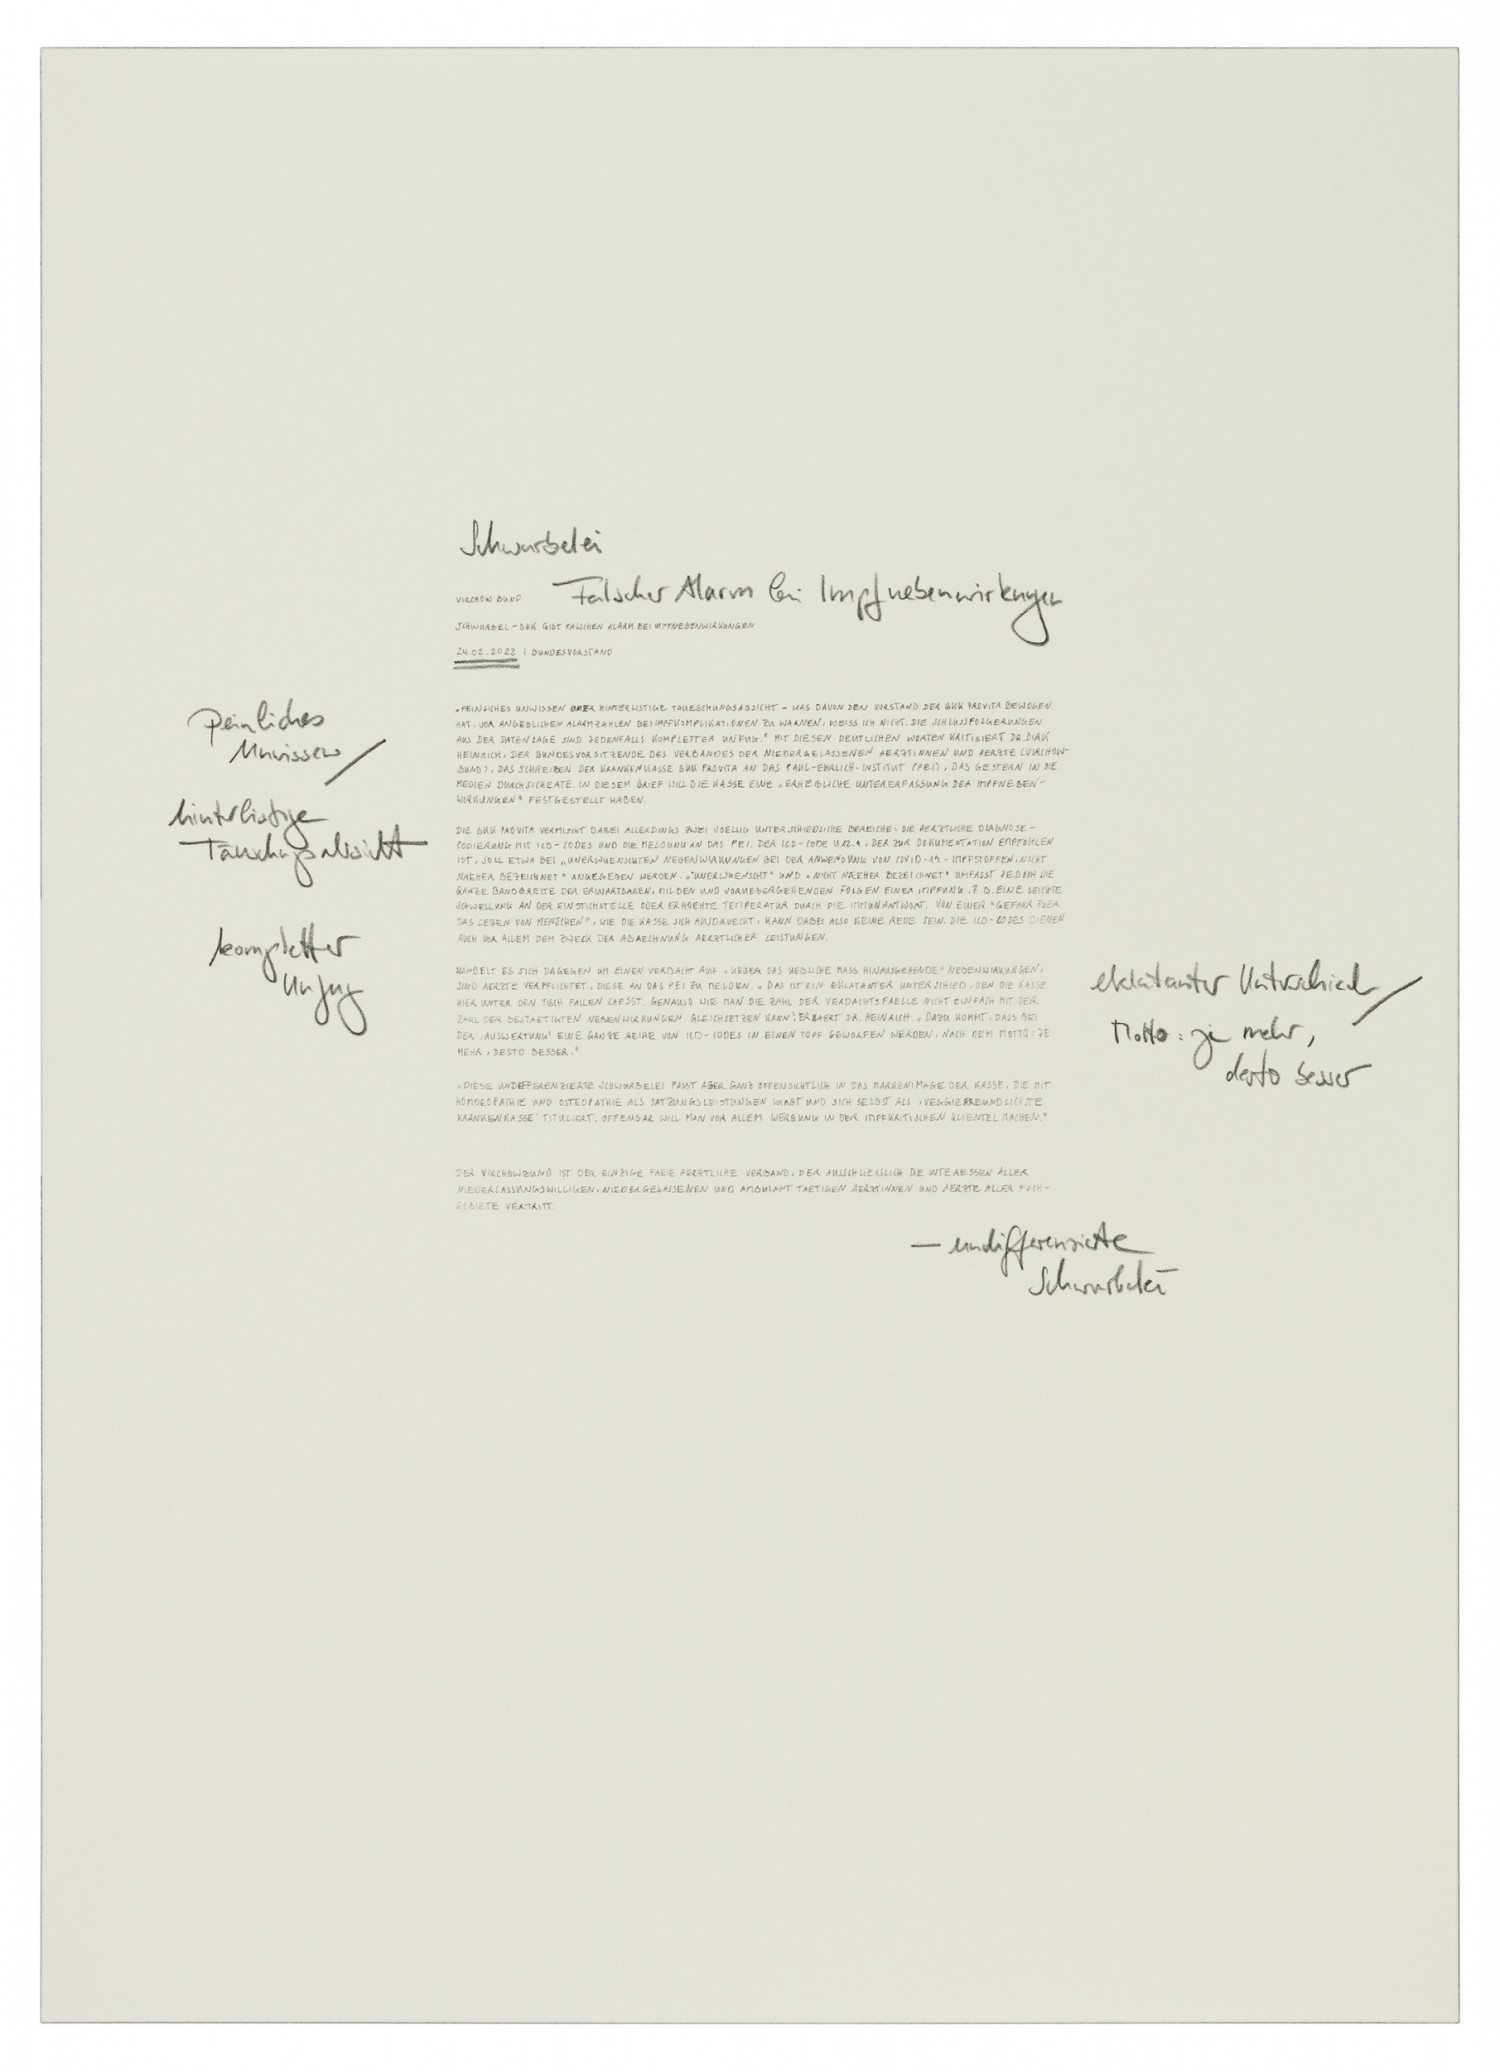 Schwurbelei
Falscher Alarm bei Impfnebenwirkungen
VIRCHOW BUND
SCHWURBEL-BKK GIBT FALSCHEN ALARM BEI IMPFNEBENWIRKUNGEN
24.02.2022 | BUNDESVORSTAND
Peinliches
Unwissen/
hinterlistige
Täuschungsabsicht
kompletter
Unfug
„PEINLICHES UNWISSEN ODER HINTERLISTIGE TAUESCHUNGSABSICHT – WAS DAVON DEN VORSTAND DER BKK PROVITA BEWOGEN
HAT, VOR ANGEBLICHEN ALARMZAHLEN BEI IMPFKOMPLIKATIONEN ZU WARNEN, WEISS ICH NICHT. DIE SCHLUSSFOLGERUNGEN
AUS DER DATENLAGE SIND JEDENFALLS KOMPLETTER UNFUG." MIT DIESEN DEUTLICHEN WORTEN KRITISIERT DR. DIRK
HEINRICH, DER BUNDESVORSITZENDE DES VERBANDES DER NIEDERGELASSENEN AERZTINNEN UND AERZTE (VIRCHOW-
BUND), DAS SCHREIBEN DER KRANKENKASSE BKK PROVITA AN DAS PAUL-EHRLICH-INSTITUT (PEI), DAS GESTERN IN DIE
MEDIEN DURCHSICKERTE. IN DIESEM BRIEF WILL DIE KASSE EINE „ERHEBLICHE UNTERERFASSUNG DER IMPFNEBEN-
WIRKUNGEN" FESTGESTELLT HABEN.
DIE BKK PROVITA VERMISCHT DABEI ALLERDINGS ZWEI VOELLIG UNTERSCHIEDLICHE BEREICHE: DIE AERZTLICHE DIAGNOSE-
CODIERUNG MIT ICD-CODES UND DIE MELDUNG AN DAS PEI. DER ICD-CODE U12.9, DER ZUR DOKUMENTATION EMPFOHLEN
IST, SOLL ETWA BEI „UNERWUENSCHTEN NEBENWIRKUNGEN BEI DER ANWENDUNG VON COVID-19-IMPFSTOFFEN, NICHT
NAEHER BEZEICHNET" ANGEGEBEN WERDEN. „UNERWUENSCHT" UND „NICHT NAEHER BEZEICHNET" UMFASST JEDOCH DIE
GANZE BANDBREITE DER ERWARTBAREN, MILDEN UND VORUEBERGEHENDEN FOLGEN EINER IMPFUNG, Z.B. EINE LEICHTE
SCHWELLUNG AN DER EINSTICHSTELLE ODER ERHOEHTE TEMPERATUR DURCH DIE IMMUNANTWORT. VON EINER "GEFAHR FUER
DAS LEBEN VON MENSCHEN", WIE DIE KASSE SICH AUSDRUECKT, KANN DABEI ALSO KEINE REDE SEIN. DIE ICD-CODES DIENEN
AUCH VOR ALLEM DEM ZWECK DER ABRECHNUNG AERZTLICHER LEISTUNGEN.
HANDELT ES SICH DAGEGEN UM EINEN VERDACHT AUF „UEBER DAS UEBLICHE MASS HINAUSGEHENDE" NEBENWIRKUNGEN,
SIND AERZTE VERPFLICHTET, DIESE AN DAS PEI ZU MELDEN. „DAS IST EIN EKLATANTER UNTERSCHIED, DEN DIE KASSE
HIER UNTER DEN TISCH FALLEN LAESST. GENAUSO WIE MAN DIE ZAHL DER VERDACHTSFAELLE NICHT EINFACH MIT DER
ZAHL DER BESTAETIGTEN NEBENWIRKUNGEN GLEICHSETZEN KANN", ERKLAERT DR. HEINRICH. „DAZU KOMMT, DASS BEI
DER ‚AUSWERTUNG' EINE GANZE REIHE VON ICD-CODES IN EINEN TOPF GEWORFEN WERDEN, NACH DEM MOTTO: JE
MEHR, DESTO BESSER."
eklatanter Unterschied/
Motto: je mehr,
desto besser
„DIESE UNDIFFERENZIERTE SCHWURBELEI PASST ABER GANZ OFFENSICHTLICH IN DAS MARKENIMAGE DER KASSE, DIE MIT
HOMOEOPATHIE UND OSTEOPATHIE ALS SATZUNGSLEISTUNGEN WIRBT UND SICH SELBST ALS ‚VEGGIEFREUNDLICHSTE
KRANKENKASSE' TITULIERT. OFFENBAR WILL MAN VOR ALLEM WERBUNG IN DER IMPFKRITISCHEN KLIENTEL MACHEN."
DER VIRCHOWBUND IST DER EINZIGE FREIE AERZTLICHE VERBAND, DER AUSSCHLIESSLICH DIE INTERESSEN ALLER
NIEDERLASSUNGSWILLIGEN, NIEDERGELASSENEN UND AMBULANT TAETIGEN AERZTINNEN UND AERZTE ALLER FACH-
GEBIETE VERTRITT.
— undifferenzierte
Schwurbelei